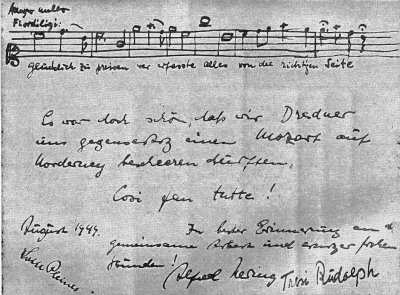 Fiordiligi:
glücklich zu preisen wer erfasste alles von der richtigen Seite
Es war doch schön, daß wir Dresdner
uns gegenseitig einen Mozart auf
Norderney bescheeren durften.
Cosi fan tutte!
August 1949. In bester Erinnerung an
gemeinsame Arbeit und frohen
Stunden!
Alfred Rudolph